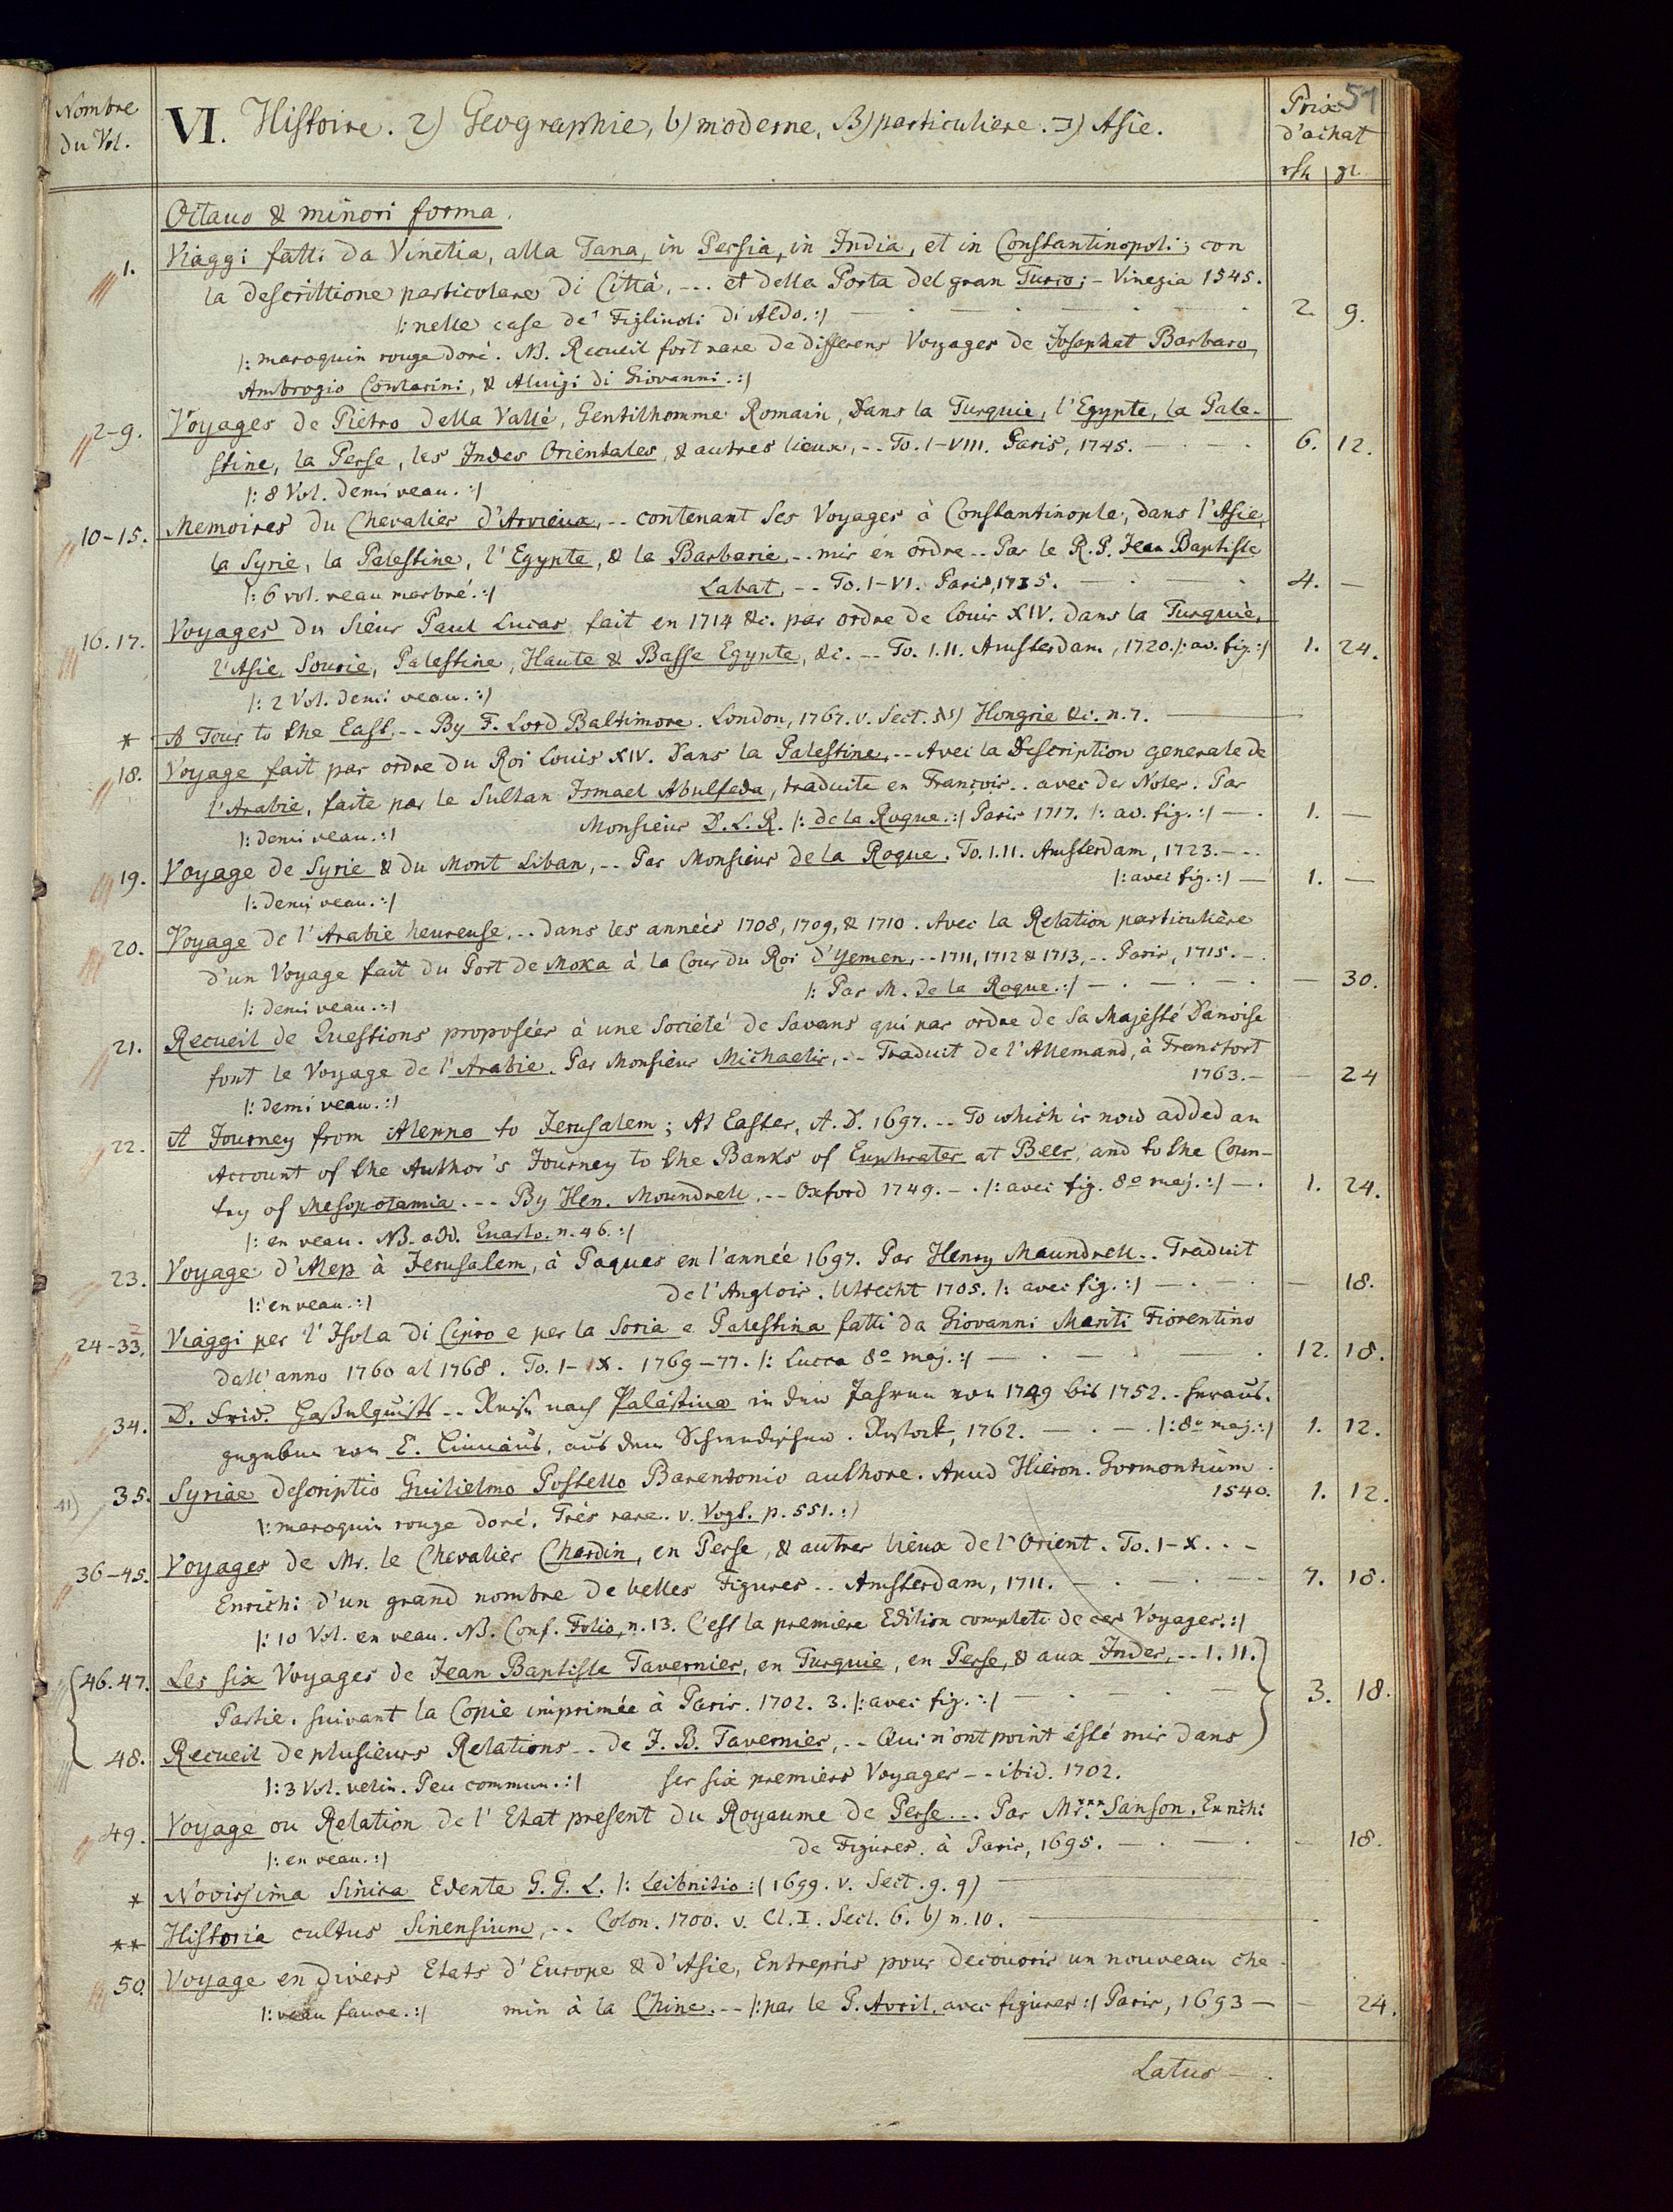 Nombre du Vol.
VI. Histoire. 2) Geographie, b) moderne, B) particuliere. ב) Asie.
Prix d'achat
51
rth gr.
Octavo & minori forma.
1. Viaggi fatti da Vinetia, alla Tana, in Persia, in India, et in Constantinopoli; con
la descrittione particolare di Città, --- et della Porta del gran Turco; - Vinegia 1545.
|: nelle case de' Figliuoli di Aldo. :| 2. 9.
|: maroquin rouge doré. NB. Recueil fort rare de differens Voyages de Josaphat Barbaro,
Ambrogio Contarini, & Aluigi di Giovanni. :|
2-9. Voyages de Piétro della Vallé, Gentilhomme Romain, dans la Turquie, l'Egypte, la Pale-
stine, la Perse, les Indes Orientales, & autres lieux, -- To. I-VIII. Paris, 1745. 6. 12.
|: 8 Vol. demi veau. :|
10-15. Memoires du Chevalier d'Arvieux, -- contenant ses Voyages à Constantinople, dans l'Asie,
la Syrie, la Palestine, l'Egypte, & la Barbarie, -- mis en ordre -- Par le R. P. Jean Baptiste
|: 6 vol. veau marbré. :| Labat, -- To. I-VI. Paris, 1735. 4. —
16. 17. Voyages du Sieur Paul Lucas fait en 1714 &c. par ordre de Louis XIV. dans la Turquie,
l'Asie, Sourie, Palestine, Haute & Basse Egypte, &c. -- To. I. II. Amsterdam, 1720. |: av. fig. :| 1. 24.
|: 2 Vol. demi veau. :|
* A Tour to the East, -- By F. Lord Baltimore. London, 1767. v. Sect. Hongrie &c. n. 7.
18. Voyage fait par ordre du Roi Louis XIV. dans la Palestine, -- Avec la Description generale de
l'Arabie, faite par le Sultan Ismael Abulfeda, traduite en François -- avec des Notes. Par
|: demi veau. :| Monsieur D. L. R. |: de la Roque. :| Paris 1717. |: av. fig. :| 1. —
19. Voyage de Syrie & du Mont Liban, -- Par Monsieur de la Roque. To. I. II. Amsterdam, 1723. ---
|: avec fig. :| 1. —
|: demi veau. :|
20. Voyage de l'Arabie heureuse, -- dans les années 1708, 1709, & 1710. Avec la Relation particulière
d'un Voyage fait du Port de Moka à la Cour du Roi d'Yemen, -- 1711, 1712 & 1713, -- Paris, 1715. -
|: demi veau. :| |: Par M. de la Roque. :| — 30.
21. Recueil de Questions proposées à une Société de Savans qui par ordre de Sa Majesté Danoise
font le Voyage de l'Arabie. Par Monsieur Michaelis, -- Traduit de l'Allemand, à Francfort
|: demi veau. :| 1763. — 24
22. A Journey from Aleppo to Jerusalem; At Easter, A. D. 1697. -- To which is now added an
Account of the Author's Journey to the Banks of Euphrates at Beer, and to the Coun-
try of Mesopotamia. -- By Hen. Moundrell, -- Oxford 1749. -. |: avec fig. 8º maj. :| 1. 24.
|: en veau. NB. add. Quarto. n. 46. :|
23. Voyage d'Alep à Jerusalem, à Paques en l'année 1697. Par Henry Maundrell -- Traduit
|: en veau. :| de l'Anglois. Utrecht 1705. |: avec fig. :| — 18.
24-33. Viaggi per l'Isola di Cipro e per la Soria e Palestina fatti da Giovanni Mariti Fiorentino
dall' anno 1760 al 1768. To. I-IX. 1769-77. |: Lucca 8º maj. :| 12. 18.
34. D. Frid. Haßelquists -- Reise nach Palästina in den Jahren von 1749 bis 1752. - heraus-
gegeben von C. Linnäus, aus dem Schwedischen. Rostock, 1762. |: 8º maj. :| 1. 12.
41) 35. Syriae descriptio Guilielmo Postello Barentonio authore. Apud Hieron. Gormontium
1540. 1. 12.
|: maroquin rouge doré. Très rare. v. Vogt. p. 551. :|
36-45. Voyages de Mr. le Chevalier Chardin, en Perse, & autres lieux de l'Orient. To. I-X. --
Enrichi d'un grand nombre de belles Figures -- Amsterdam, 1711. 7. 18.
|: 10 Vol. en veau. NB. Conf. Folio, n. 13. C'est la premiere Edition complete de ces Voyages. :|
46. 47. Les six Voyages de Jean Baptiste Tavernier, en Turquie, en Perse, & aux Indes, -- I. II.
Partie. suivant la Copie imprimée à Paris. 1702. 3. |: avec fig. :| 3. 18.
48. Recueil de plusieurs Relations -- de J. B. Tavernier, -- Qui n'ont point ésté mis dans
|: 3 Vol. velin. Peu commun. :| ses six premiers Voyages -- ibid. 1702.
49. Voyage ou Relation de l'Etat present du Royaume de Perse -- Par Mr.*** Sanson. Enrichi
|: en veau. :| de Figures. à Paris, 1695. — 18.
* Novissima Sinica Edente G. G. L. |: Leibnitio :| 1699. v. Sect. 9. q)
** Historia cultus Sinensium, -- Colon. 1700. v. Cl. I. Sect. 6. b) n. 10.
50. Voyage en divers Etats d'Europe & d'Asie, Entrepris pour decouvrir un nouveau che-
|: veau fauve. :| min à la Chine. -- |: par le P. Avril. avec figures :| Paris, 1693 — 24.
Latus —